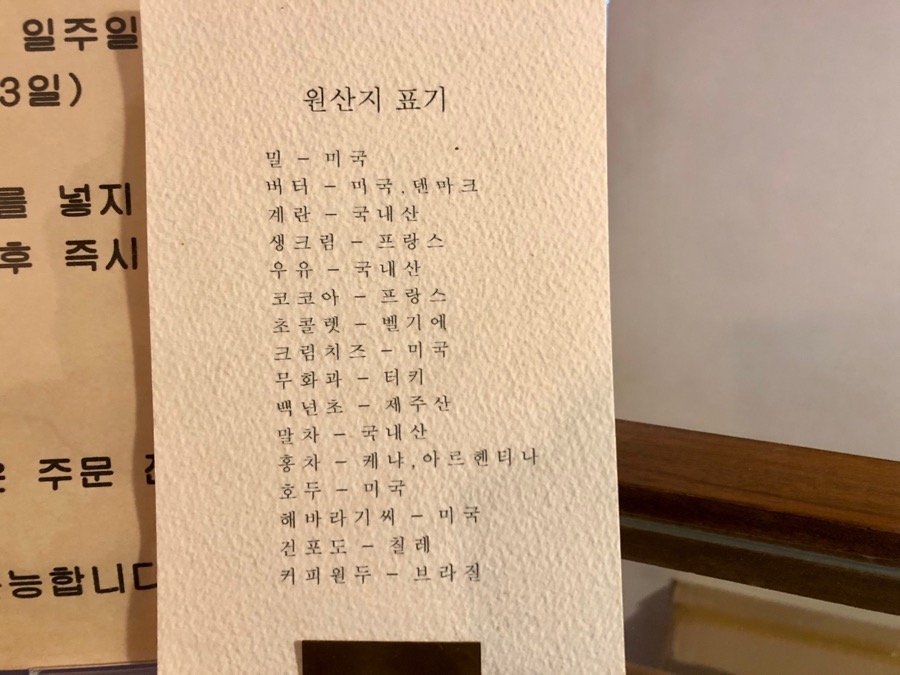 일주일
3일)
를 넣지
후 즉시
주문
능합니다
원산지 표기
밀 - 미국
버터 - 미국,덴마크
계란 - 국내산
생크림 - 프랑스
우유 - 국내산
코코아 - 프랑스
초콜렛 - 벨기에
크림치즈 - 미국
무화과 - 터키
백년초 - 제주산
말차 - 국내산
홍차 - 케냐,아르헨티나
호두 - 미국
해바라기씨 - 미국
건포도 - 칠레
커피원두 - 브라질